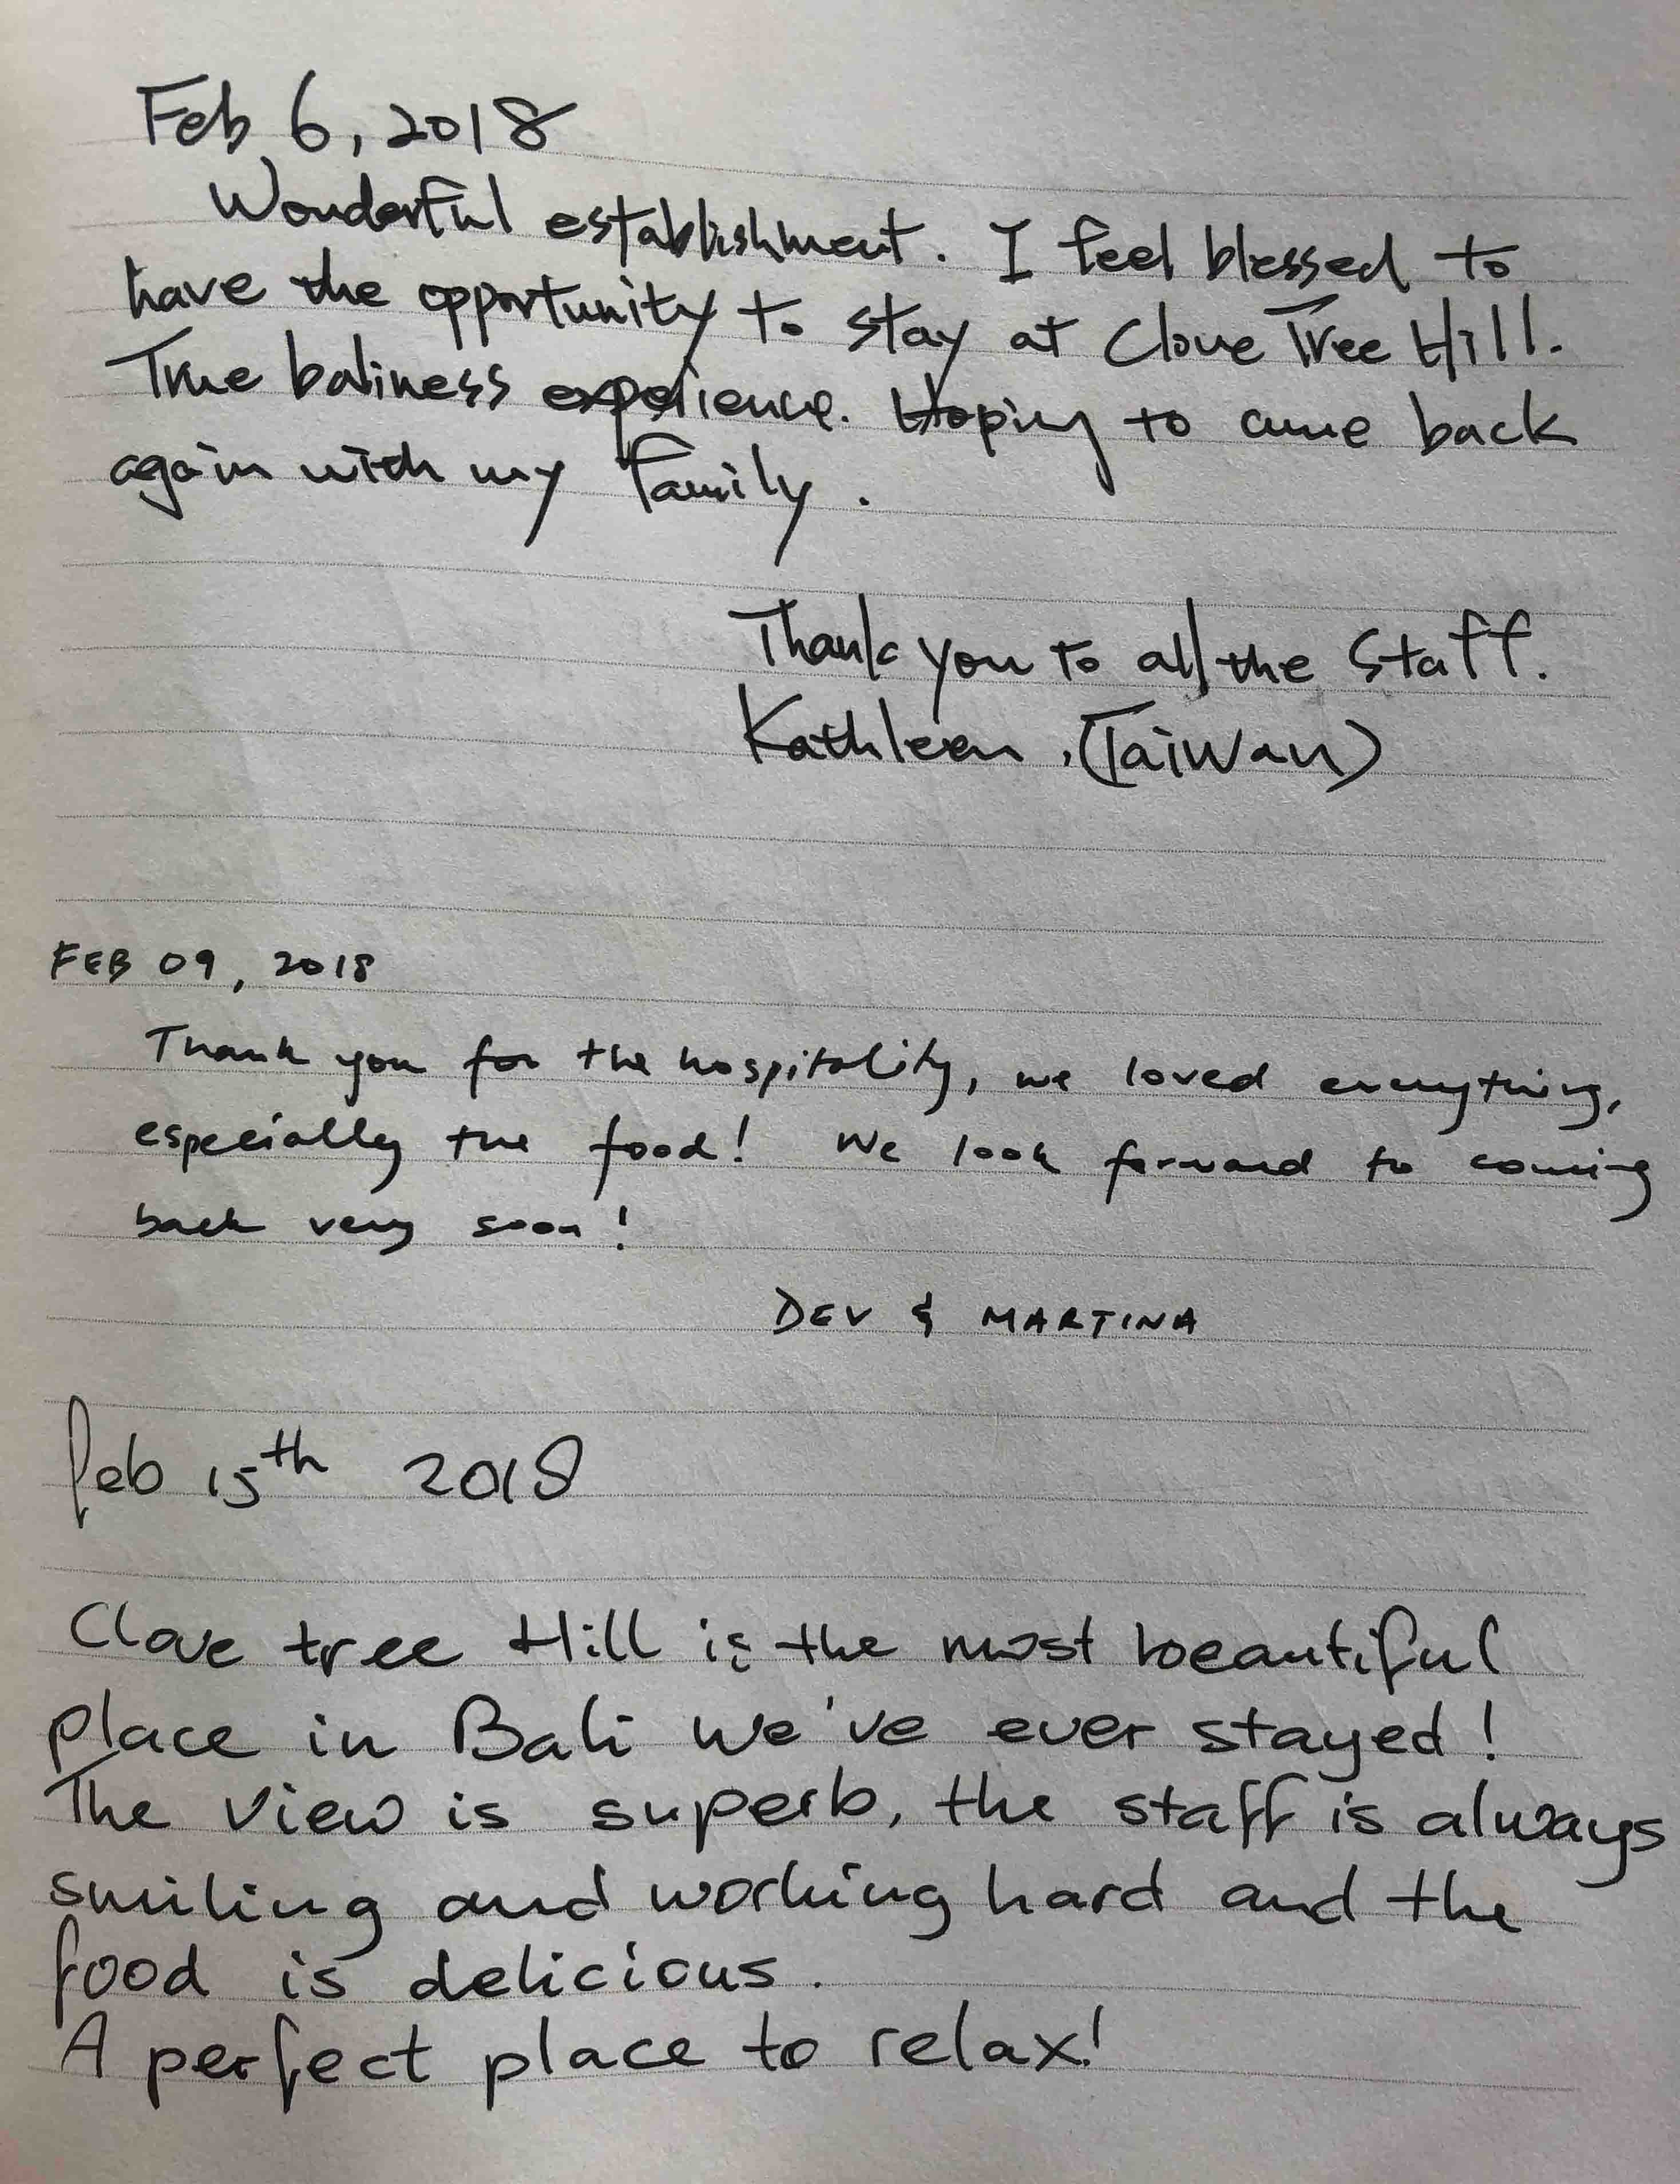 Feb 6, 2018
Wonderful establishment. I feel blessed to
have the opportunity to stay at Clove Tree Hill.
True baliness experience. Hoping to come back
again with my family.
Thank you to all the staff.
Kathleen, (Taiwan)
FEB 09, 2018
Thank you for the hospitality, we loved everything,
especially the food! We look forward to coming
back very soon!
DEV & MARTINA
feb 15th 2018
Clove tree Hill is the most beautiful
place in Bali we've ever stayed!
The view is superb, the staff is always
smiling and working hard and the
food is delicious.
A perfect place to relax!